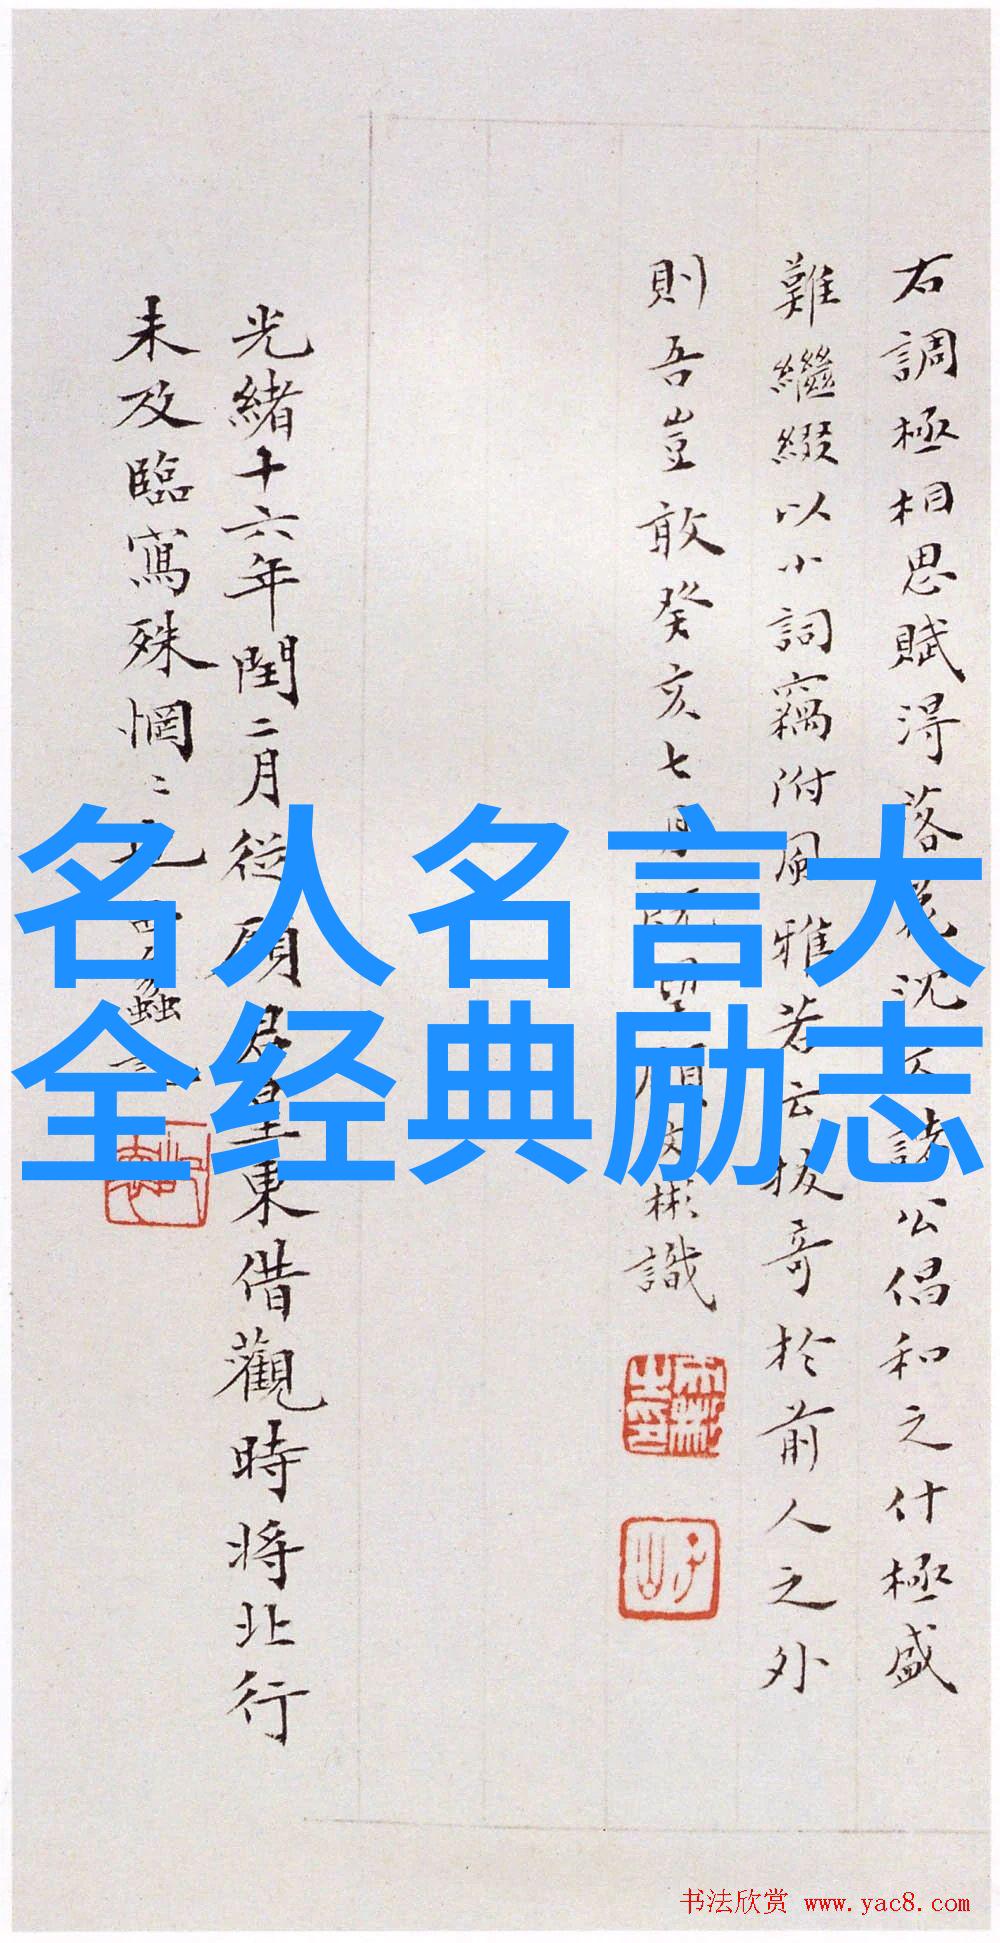 名人名言大
全经典励志
右調極相思賦得落花沈石諸公倡和之什極盛
難繼綴以小詞竊附風雅若云拔奇於前人之外
則吾豈敢癸亥七月既望顧文彬識
光緒十六年閏二月從顧君星東借觀時将北行
未及臨寫殊惘〻也
書法欣赏 www.yac8.com